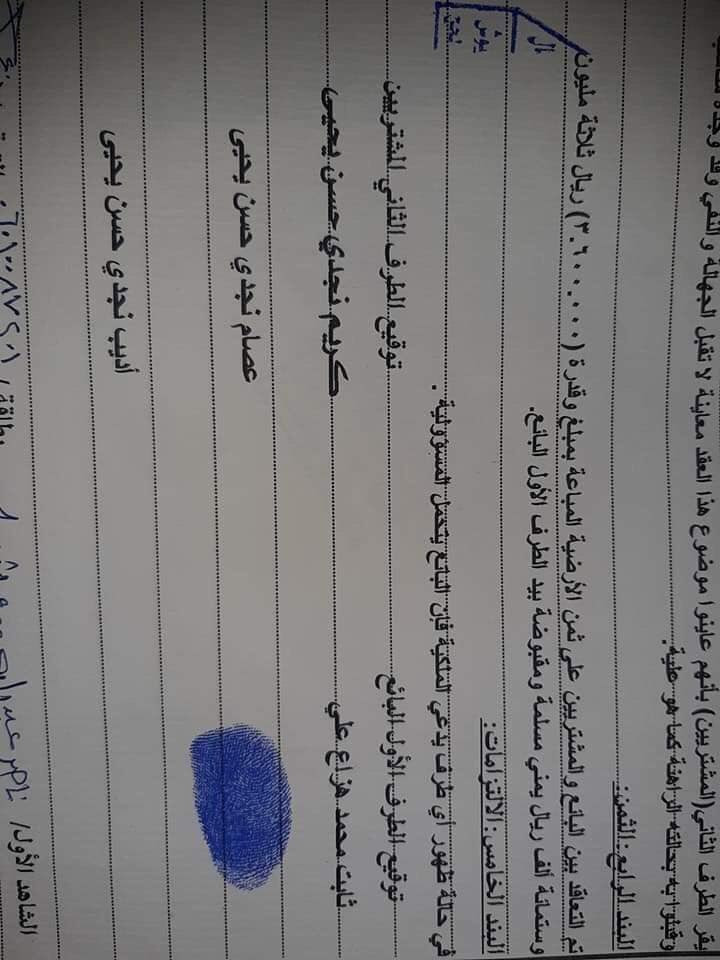 يقر الطرف الثاني(المشتريين) بانهم عاينوا موضوع هذا العقد معاينة لا تقبل الجهالة والنفي وقد وجدة
وقبلوا به بحالته الراهنة كما هو علية.
البند الرابع:الثمن:
تم التعاقد بين البائع والمشتريين على ثمن الأرضية المباعة بمبلغ وقدرة (٣.٦٠٠.٠٠٠) ريال ثلاثة مليون
وستمائة ألف ريال يمني مسلمة ومقبوضة بيد الطرف الأول البائع.
البند الخامس:الالتزامات:
في حالة ظهور أي طرف يدعي الملكية فإن البائع يتحمل المسؤولية .
توقيع الطرف الأول البائع توقيع الطرف الثاني المشتريين
ثابت محمد هزاع علي كريم نجدي حسن يحيى
عصام نجدي حسن يحيى
أديب نجدي حسن يحيى
الشاهد الأول/ ناصر عبدالله بطاقة/